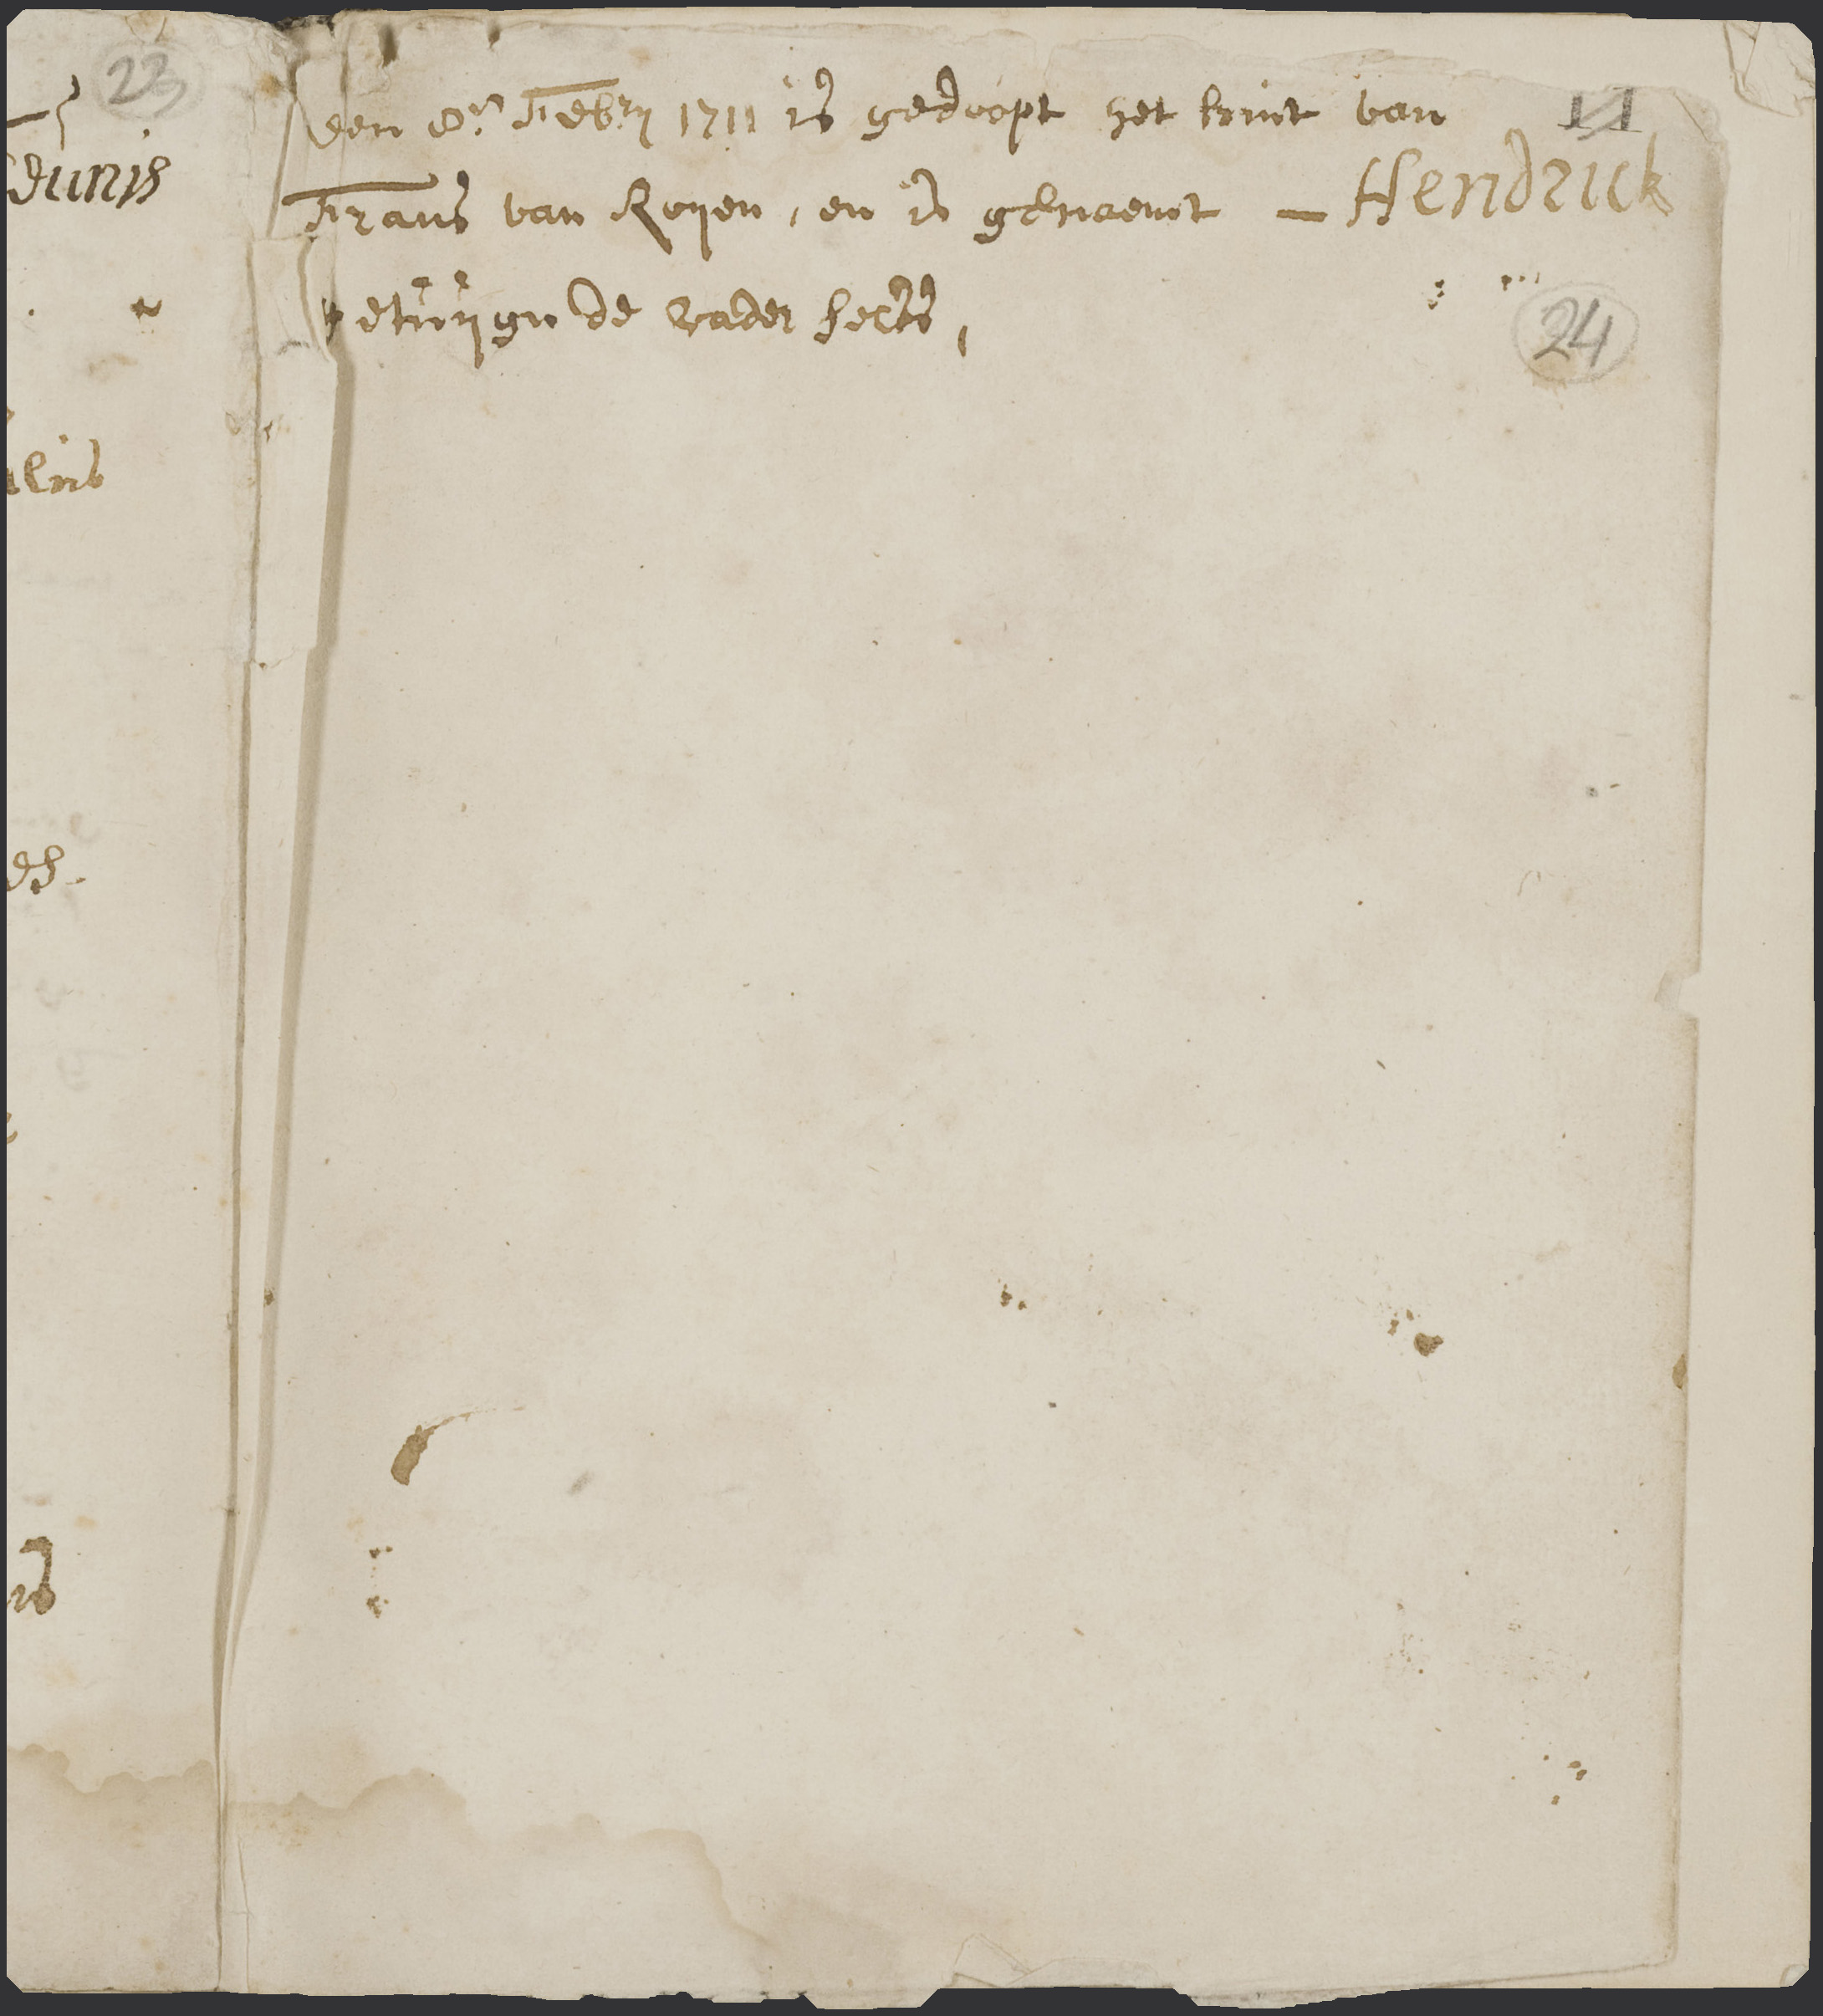 23
dunis
den 8.en Feb.ry 1711 is gedoopt het kint van 11
Frans van Royen, en is genaemt — Hendrick
getuygn de vader selvs,
24